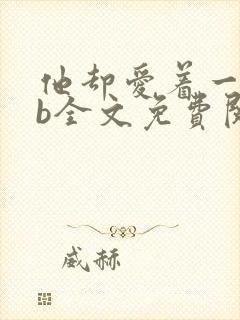 他却爱着一
b全文免費閱
威赫